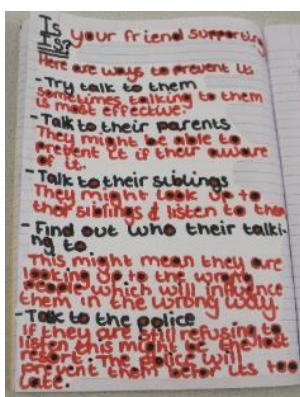 Is your friend supporting
IS?
Here are ways to prevent it:
- Try talk to them
sometimes talking to them
is most effective.
- Talk to their parents
They might be able to
prevent it if their aware
of it.
- Talk to their siblings
They might look up to
their siblings & listen to them
- Find out who their talki-
ng to.
This might mean they are
looking up to the wrong
people which will influence
them in the wrong way.
- Talk to the police
If they are still refusing to
listen this might be the last
resort. The police will
prevent them befor its too
late.